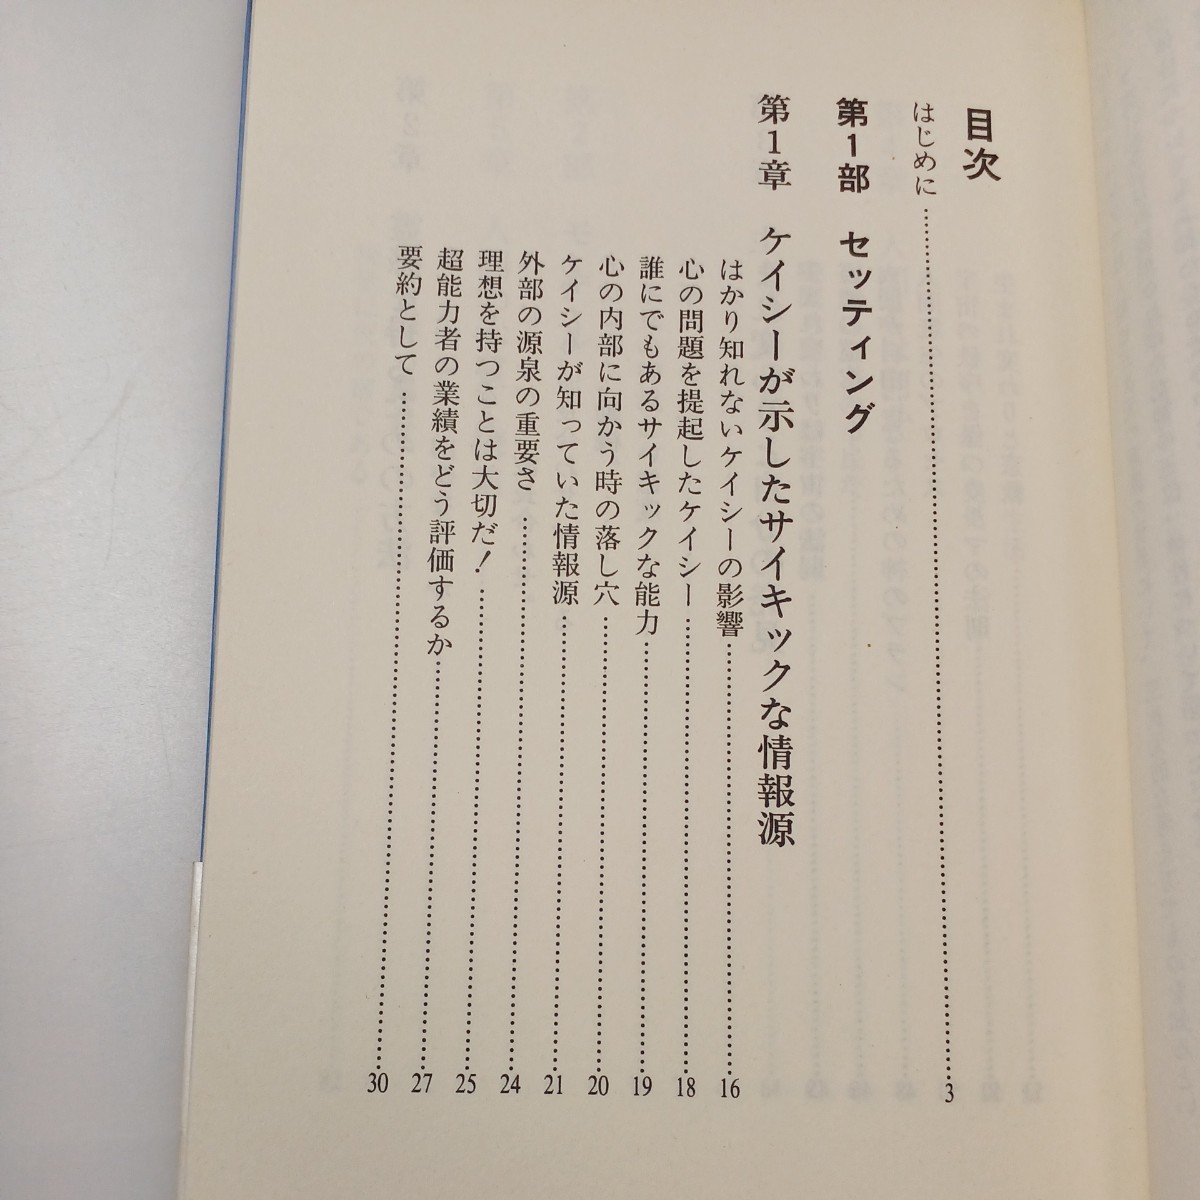 目次
はじめに……3
第1部 セッティング
第1章 ケイシーが示したサイキックな情報源
はかり知れないケイシーの影響……16
心の問題を提起したケイシー……18
誰にでもあるサイキックな能力……19
心の内部に向かう時の落し穴……20
ケイシーが知っていた情報源……21
外部の源泉の重要さ……24
理想を持つことは大切だ!……25
超能力者の業績をどう評価するか……27
要約として……30